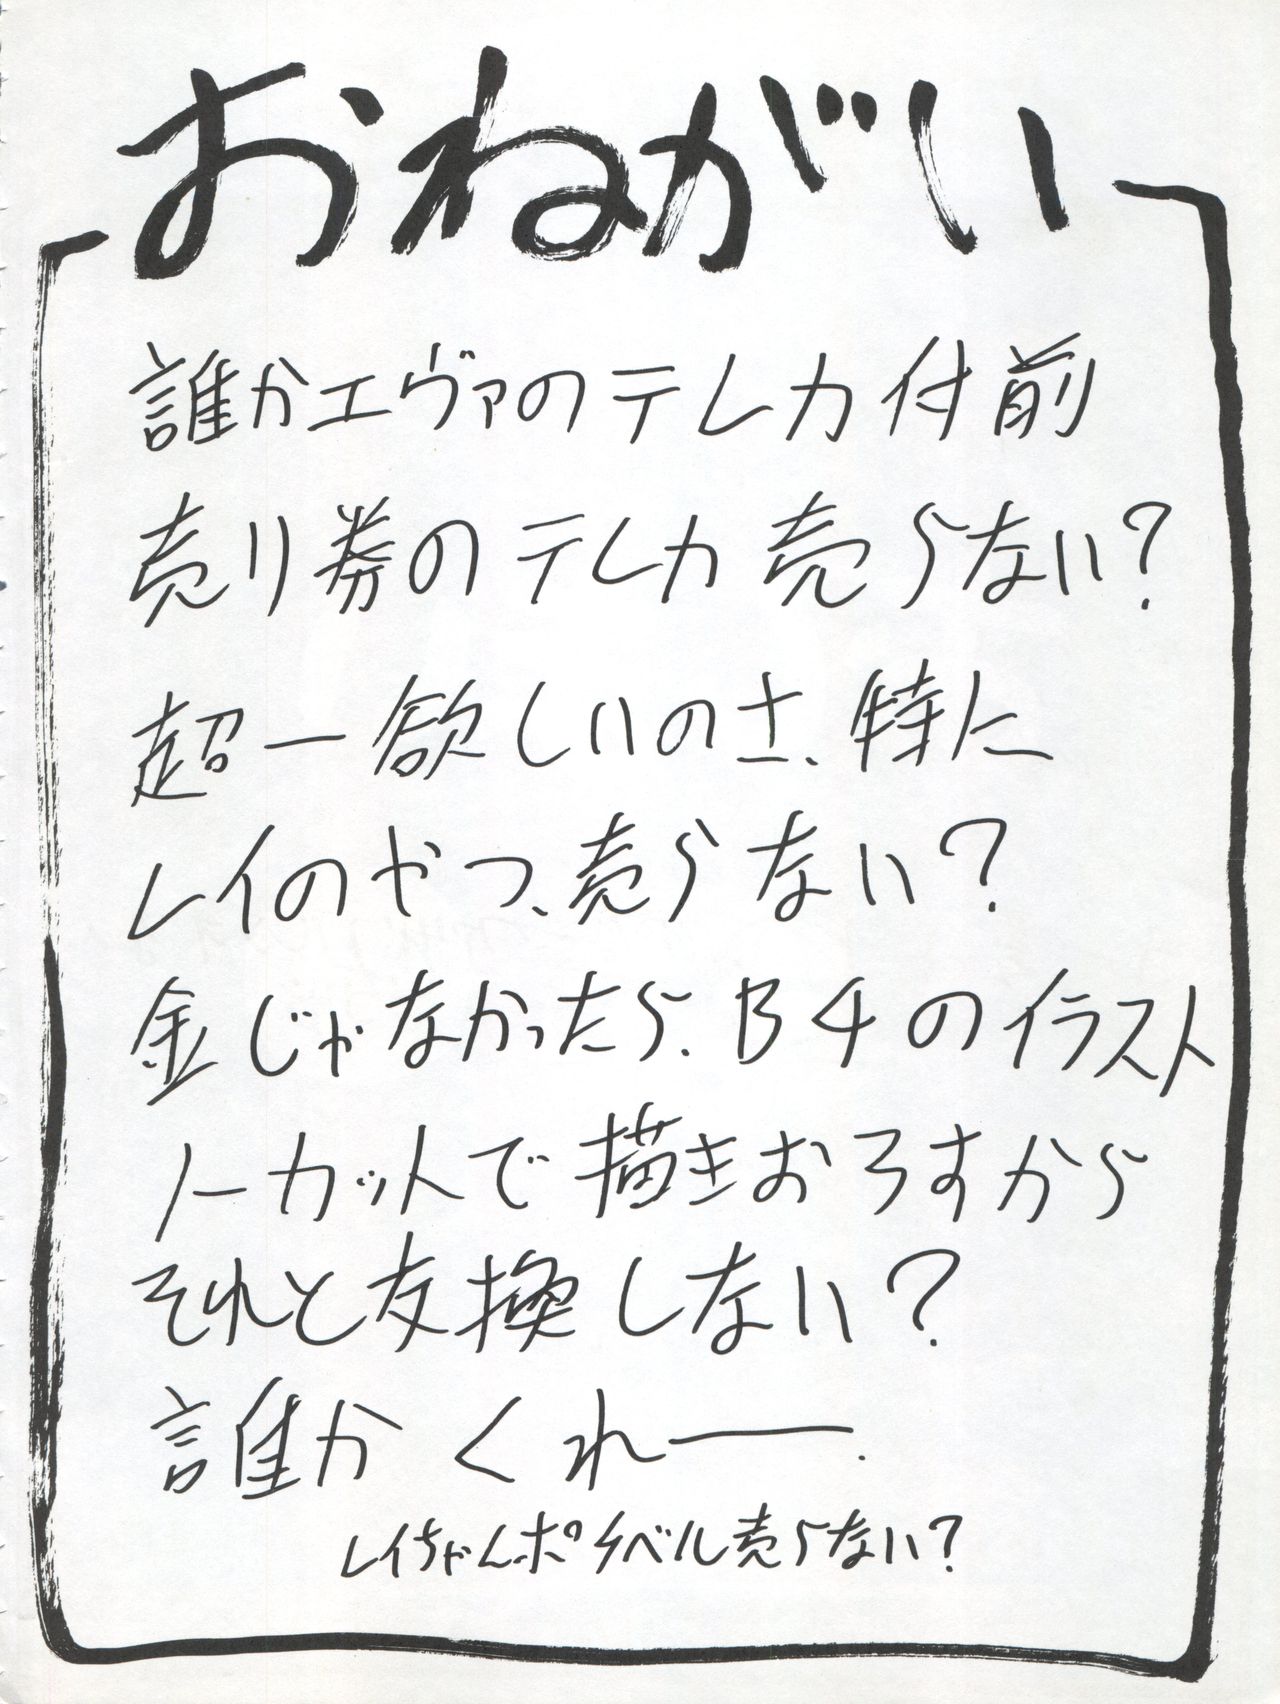 おねがい
誰かエヴァのテレカ付前
売り券のテレカ売らない?
超一欲しいのさ、特に
レイのやつ、売らない?
金じゃなかったら、B4のイラスト
ノーカットで描きおろすから
それと交換しない?
誰かくれー.
レイちゃん 売らない?